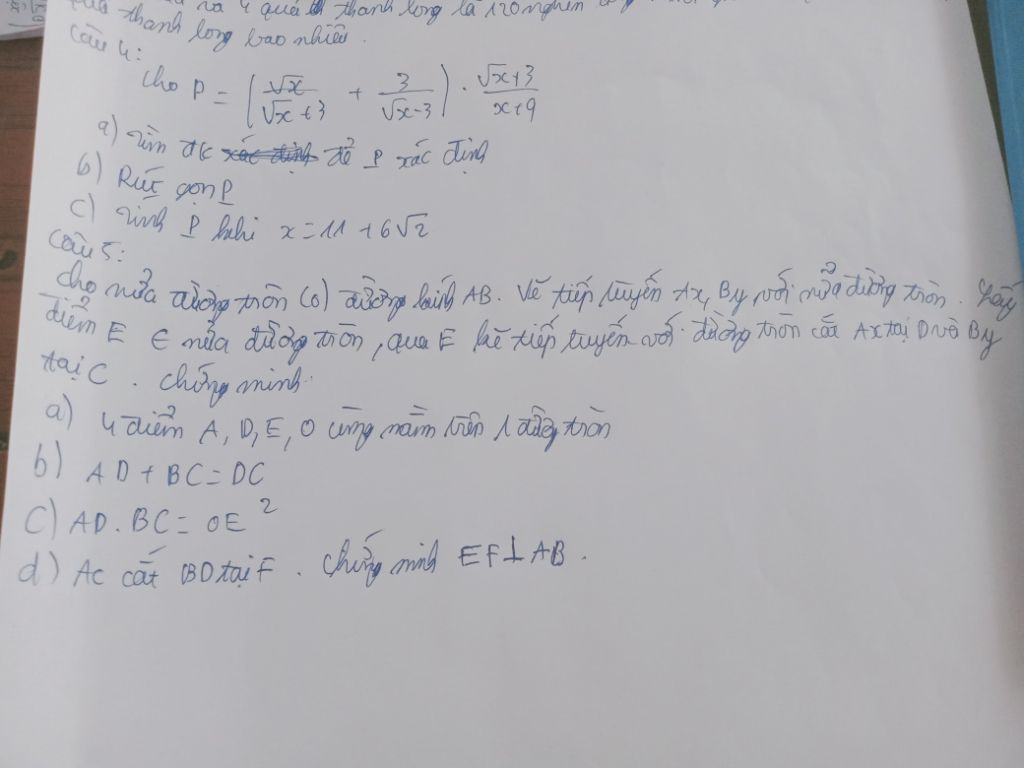 ra 4 quả thanh long là 120 nghìn
quả thanh long bao nhiêu.
Câu 4:
Cho P = (√x/(√x+3) + 3/(√x-3)) . (√x+3)/(x+9)
a) Tìm đk xác định để P xác định
b) Rút gọn P
c) Tính P khi x = 11 + 6√2
Câu 5:
Cho nửa đường tròn (O) đường kính AB. Vẽ tiếp tuyến Ax, By với nửa đường tròn. Lấy
điểm E ∈ nửa đường tròn, qua E kẻ tiếp tuyến với đường tròn cắt Ax tại D và By
tại C. Chứng minh.
a) 4 điểm A, D, E, O cùng nằm trên 1 đường tròn
b) AD + BC = DC
C) AD . BC = OE²
d) AC cắt BD tại F. Chứng minh EF⊥AB.